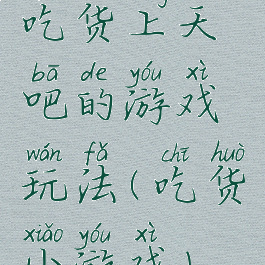 吃货上天
bā de yóu xì
吧的游戏
wán fǎ chī huò
玩法(吃货
xiǎo yóu xì
小游戏)